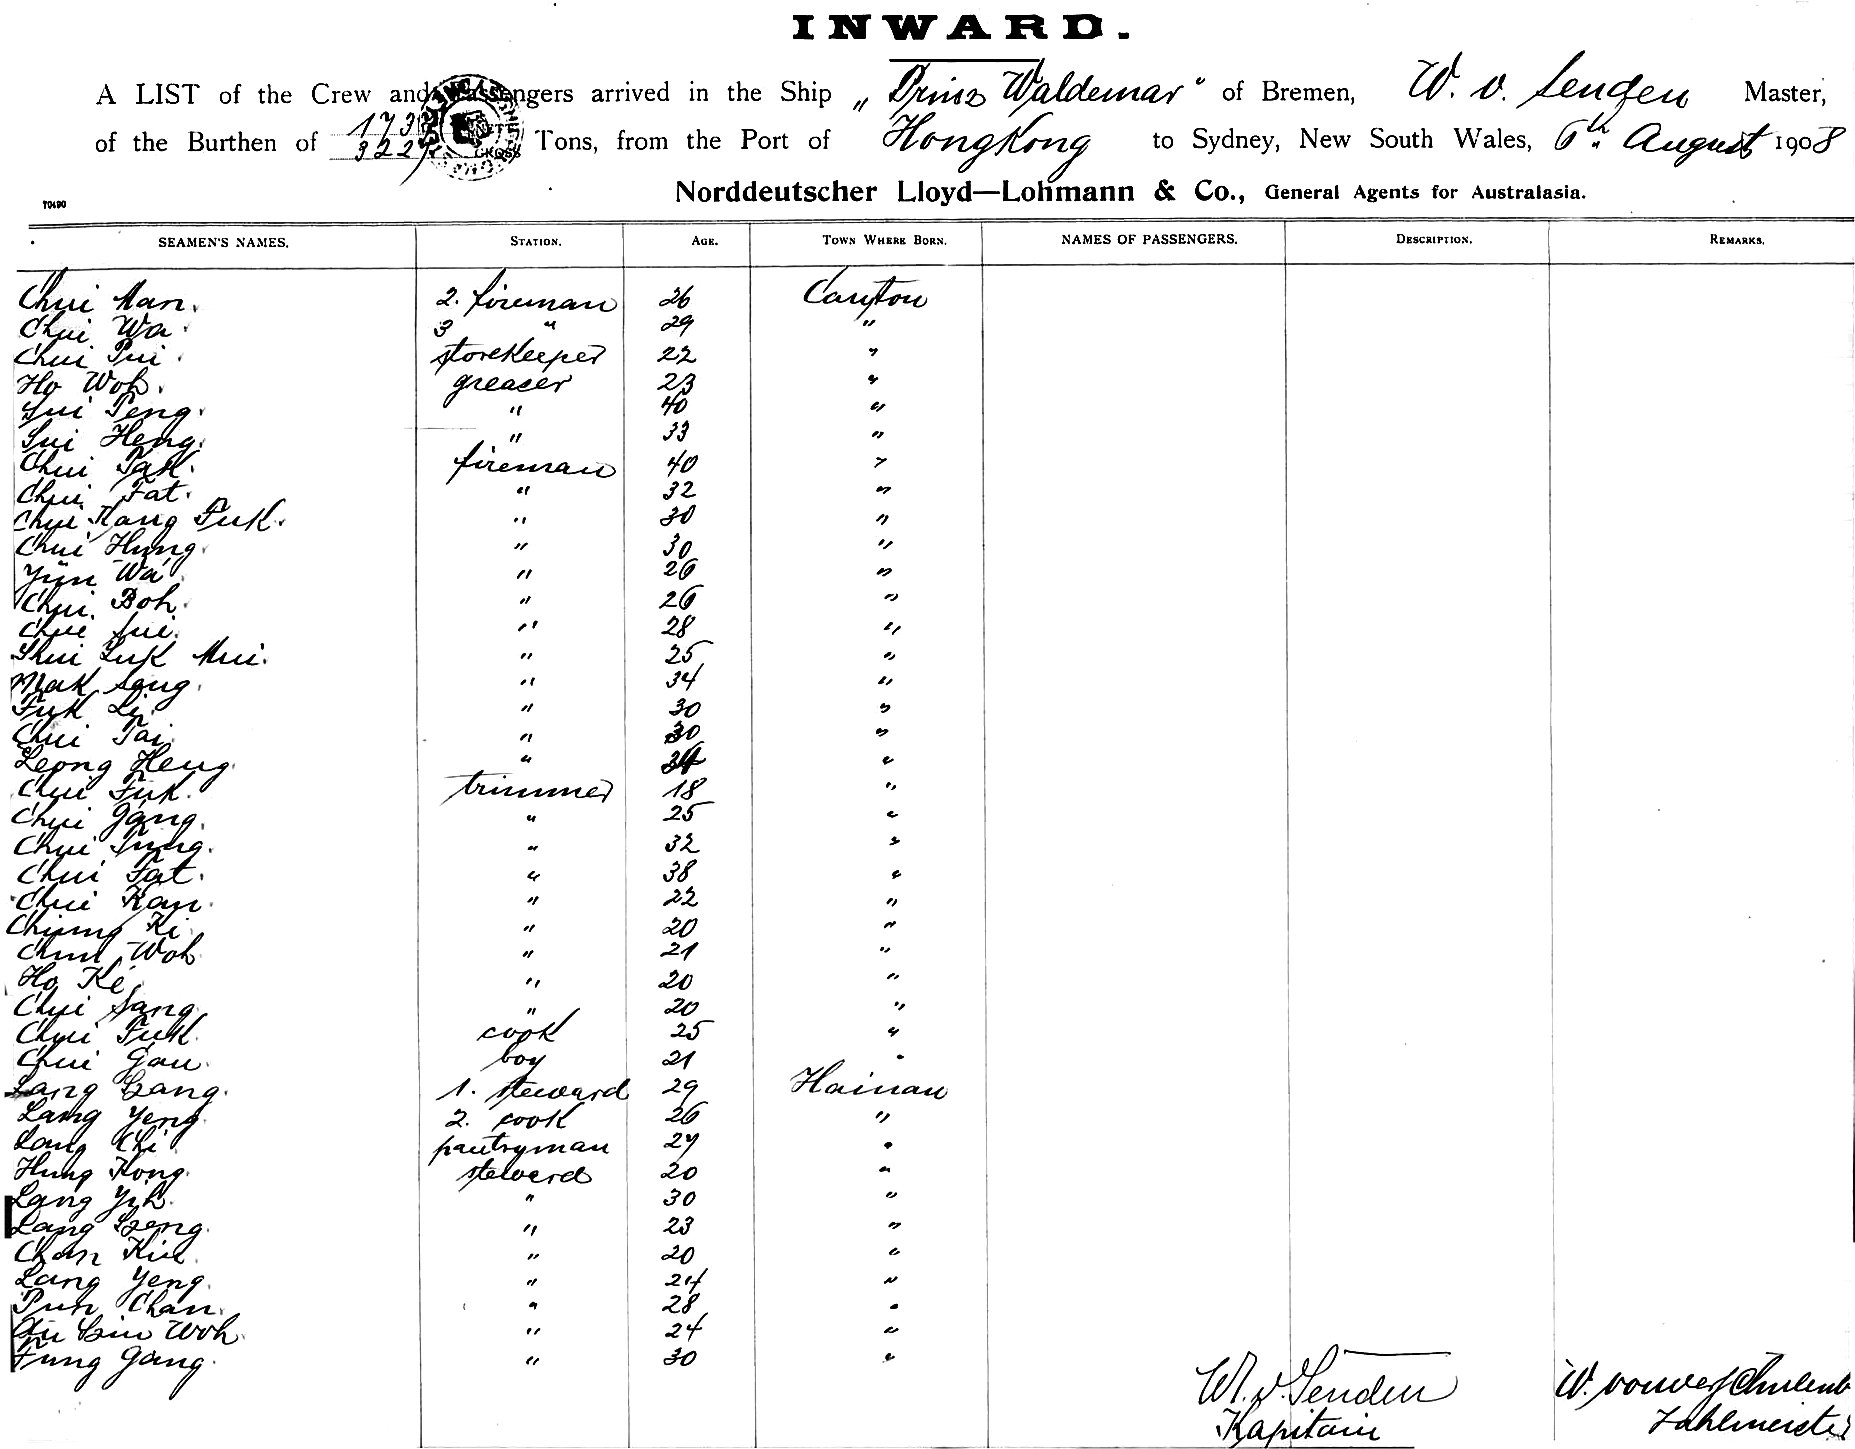 INWARD.
A LIST of the Crew and Passengers arrived in the Ship „Prinz Waldemar" of Bremen, W. v. Senden Master,
of the Burthen of Tons, from the Port of HongKong to Sydney, New South Wales, 6th August 1908
Norddeutscher Lloyd—Lohmann & Co., General Agents for Australasia.
70490
SEAMEN'S NAMES. STATION. AGE. TOWN WHERE BORN. NAMES OF PASSENGERS. DESCRIPTION. REMARKS.
Chui Man. 2. fireman 26 Canton
Chui Wa. 3 " 29 "
Chui Pui. storekeeper 22 "
Ho Woh. greaser 23 "
Sui Peng. " 40 "
Sui Heng. " 33 "
Chui Pak. fireman 40 "
Chui Fat. " 32 "
Chui Kang Fuk. " 30 "
Chui Hung. " 30 "
Yün Wa. " 26 "
Chui Boh. " 26 "
Chui Sui. " 28 "
Shui Luk Mui. " 25 "
Mak Sang. " 34 "
Fuk Li. " 30 "
Chui Tai. " 30 "
Leong Heng. " "
Chui Fuk. trimmer 18 "
Chui Gang. " 25 "
Chui Tung. " 32 "
Chui Fat. " 38 "
Chui Kan. " 22 "
Chiung Ki. " 20 "
Chui Woh " 21 "
Ho Ke. " 20 "
Chui Sang. " 20 "
Chui Fuk. cook 25 "
Chui Gau. boy 21 "
Lang Gang. 1. steward 29 Hainan
Lang Yeng. 2. cook 26 "
Lang Chi pantryman 27 "
Hung Kong. steward 20 "
Lang Yih. " 30 "
Lang Geng. " 23 "
Chan Kiu. " 20 "
Lang Yeng. " 24 "
Pun Chan. " 28 "
Woh. " 24 "
Fung Gang. " 30 "
W. v. Senden
Kapitain
W.
Zahlmeister